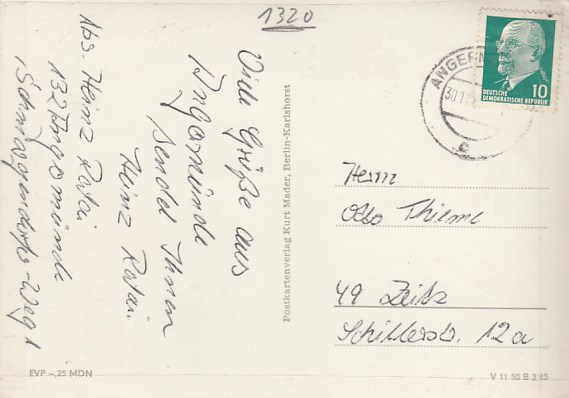 1320
Abs. Heinz Rotai
132 Angermünde
Schmargendorfer-Weg 1
Viele Grüße aus
Angermünde
sendet Ihnen
Heinz Rotai
Postkartenverlag Kurt Mader, Berlin-Karlshorst
10
DEUTSCHE
DEMOKRATISCHE REPUBLIK
Herrn
Otto Thieme
49 Zeitz
Schillerstr. 12a
EVP -,25 MDN
V 11 50 B 2 65